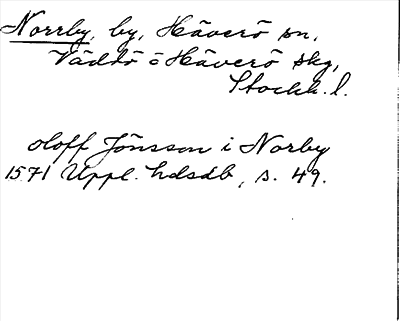 Norrby, by, Häverö sn,
Väddö o Häverö skg,
Stockh. l.
Oloff Jönsson i Norby
1571 Uppl. hdsdb, s. 49.